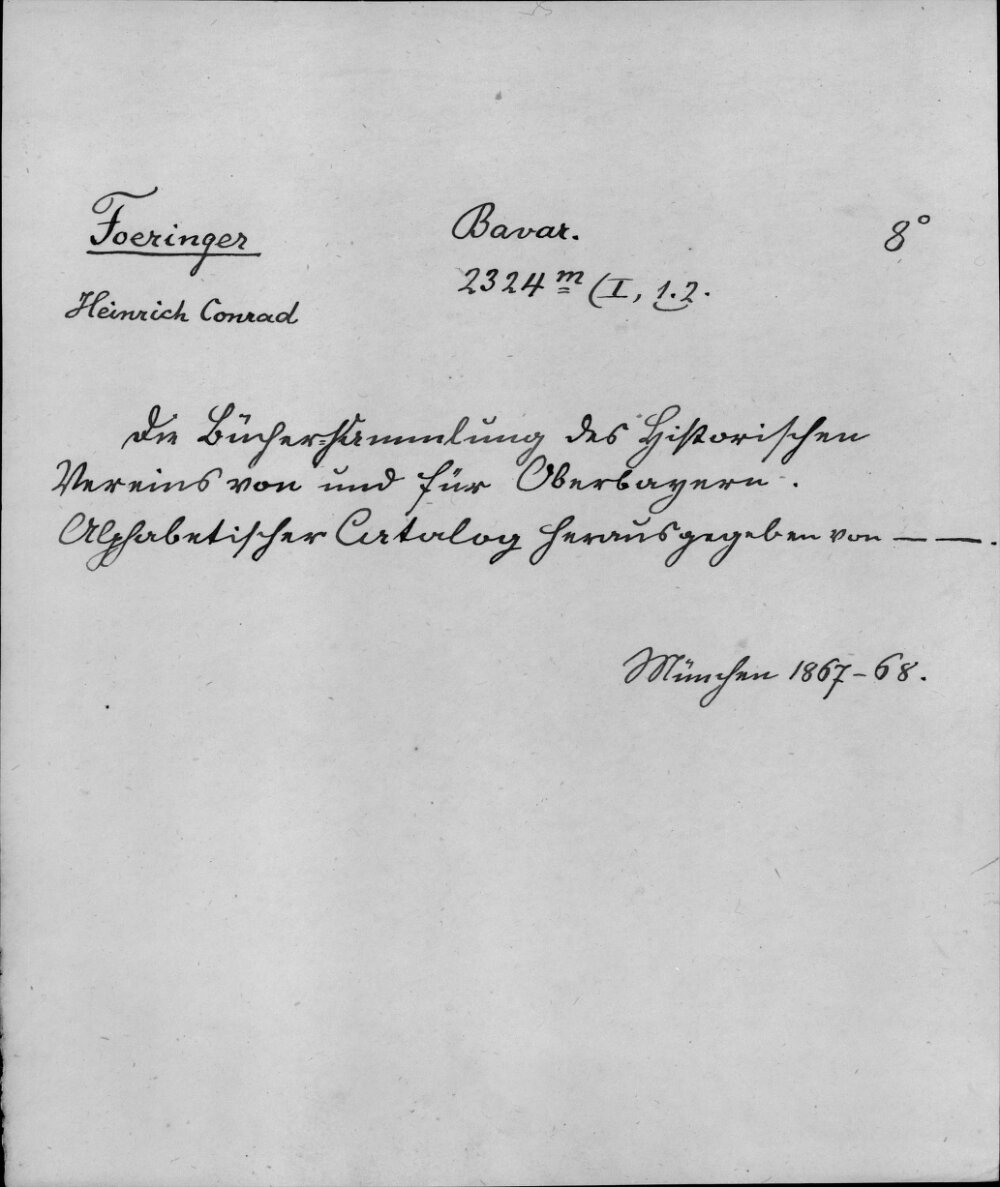 Foeringer
Bavar.
8°
2324 m (I, 1.2.
Heinrich Conrad
Die Bücher-Sammlung des Historischen
Vereins von und für Oberbayern.
Alphabetischer Catalog herausgegeben von — —.
München 1867-68.